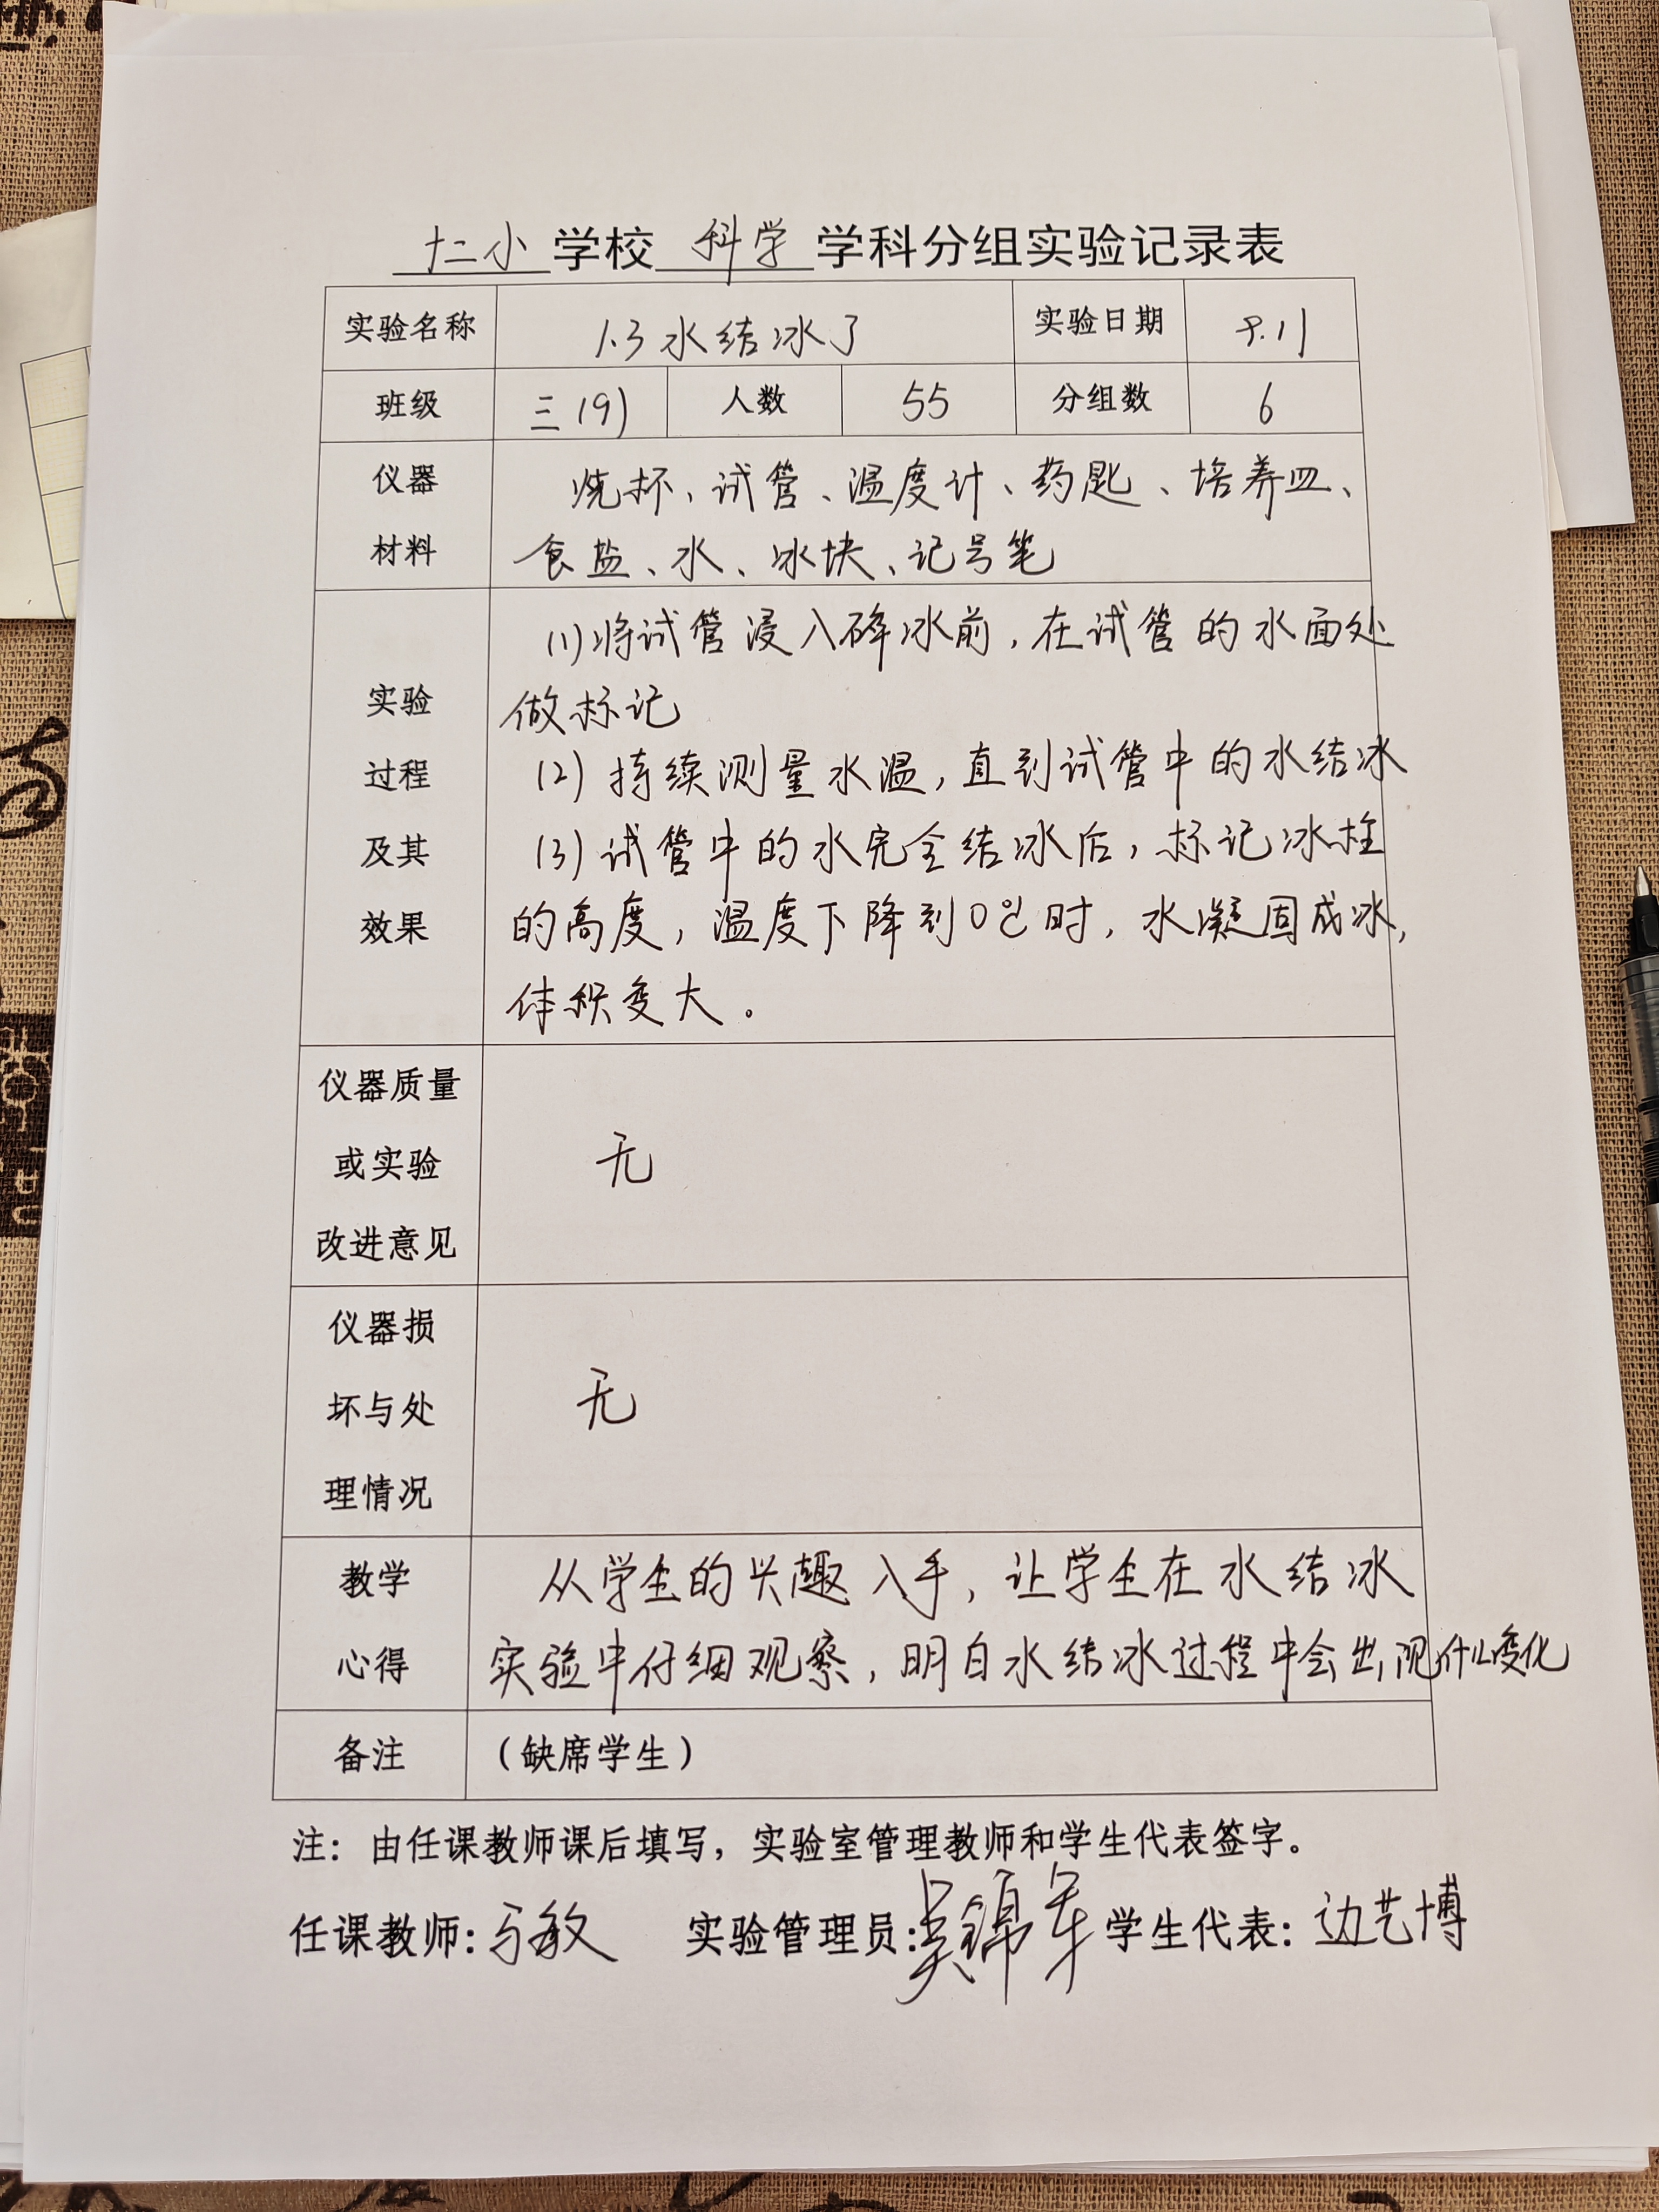 十二小学校 科学 学科分组实验记录表
实验名称 1.3水结冰了 实验日期 9.11
班级 三(9) 人数 55 分组数 6
仪器材料
烧杯、试管、温度计、药匙、培养皿、
食盐、水、冰块、记号笔
实验过程及其效果
(1)将试管浸入碎冰前,在试管的水面处
做标记
(2)持续测量水温,直到试管中的水结冰
(3)试管中的水完全结冰后,标记冰柱
的高度,温度下降到0℃时,水凝固成冰,
体积变大。
仪器质量或实验改进意见
无
仪器损坏与处理情况
无
教学心得
从学生的兴趣入手,让学生在水结冰
实验中仔细观察,明白水结冰过程中会出现什么变化
备注 (缺席学生)
注:由任课教师课后填写,实验室管理教师和学生代表签字。
任课教师:马敏 实验管理员:吴锦 学生代表:边艺博